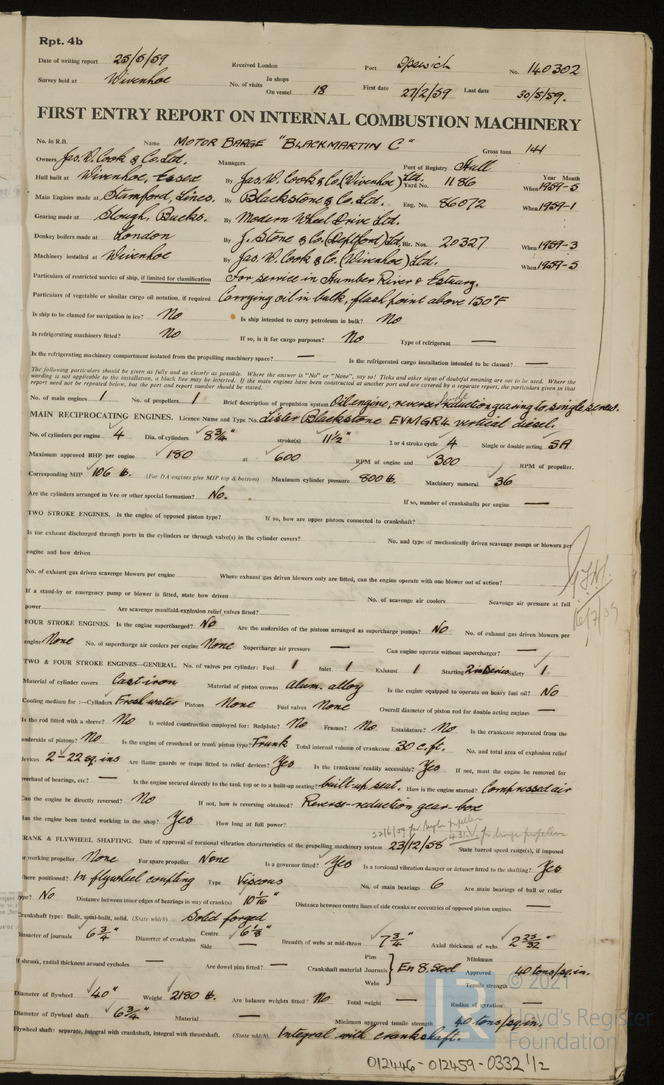 Rpt. 4b
Date of writing report 25/5/59 Received London Port Ipswich No. 140302
Survey held at Wivenhoe No. of visits In shops On vessel 18 First date 27/2/59 Last date 30/5/59.
FIRST ENTRY REPORT ON INTERNAL COMBUSTION MACHINERY
No. in R.B. Name MOTOR BARGE "BLACKMARTIN C" Gross tons 141
Owners Jas. W. Cook & Co. Ltd. Managers Port of Registry Hull
Hull built at Wivenhoe, Essex By Jas. W. Cook & Co. (Wivenhoe) Ltd. Yard No. 1186 Year Month When 1959-5
Main Engines made at Stamford, Lincs. By Blackstone & Co. Ltd. Eng. No. 86072 When 1959-1
Gearing made at Slough, Bucks. By Modern Wheel Drive Ltd.
Donkey boilers made at London By J. Stone & Co. (Deptford) Ltd. Blr. Nos. 20327 When 1959-3
Machinery installed at Wivenhoe By Jas. W. Cook & Co. (Wivenhoe) Ltd. When 1959-5
Particulars of restricted service of ship, if limited for classification For service in Humber River & Estuary.
Particulars of vegetable or similar cargo oil notation, if required Carrying oil in bulk, flash point above 150°F
Is ship to be classed for navigation in ice? No Is ship intended to carry petroleum in bulk? No
Is refrigerating machinery fitted? No If so, is it for cargo purposes? No Type of refrigerant —
Is the refrigerating machinery compartment isolated from the propelling machinery space? — Is the refrigerated cargo installation intended to be classed? —
The following particulars should be given as fully and as clearly as possible. Where the answer is "No" or "None", say so! Ticks and other signs of doubtful meaning are not to be used. Where the
wording is not applicable to the installation, a black line may be inserted. If the main engines have been constructed at another port and are covered by a separate report, the particulars given in that
report need not be repeated below, but the port and report number should be stated.
No. of main engines 1 No. of propellers 1 Brief description of propulsion system Oil engine, reverse reduction gearing to single screw.
MAIN RECIPROCATING ENGINES. Licence Name and Type No. Lister Blackstone EVMGR4 vertical diesel.
No. of cylinders per engine 4 Dia. of cylinders 8 3/4" stroke(s) 11 1/2" 2 or 4 stroke cycle 4 Single or double acting SA
Maximum approved BHP per engine 180 at 600 RPM of engine and 300 RPM of propeller.
Corresponding MIP 106 lb. (For DA engines give MIP top & bottom) Maximum cylinder pressure 800 lb. Machinery numeral 36
Are the cylinders arranged in Vee or other special formation? No. If so, number of crankshafts per engine —
TWO STROKE ENGINES. Is the engine of opposed piston type? If so, how are upper pistons connected to crankshaft?
Is the exhaust discharged through ports in the cylinders or through valve(s) in the cylinder covers? No. and type of mechanically driven scavenge pumps or blowers per
engine and how driven
No. of exhaust gas driven scavenge blowers per engine Where exhaust gas driven blowers only are fitted, can the engine operate with one blower out of action?
If a stand-by or emergency pump or blower is fitted, state how driven No. of scavenge air coolers Scavenge air pressure at full
power Are scavenge manifold explosion relief valves fitted?
FOUR STROKE ENGINES. Is the engine supercharged? No Are the undersides of the pistons arranged as supercharge pumps? No No. of exhaust gas driven blowers per
engine None No. of supercharge air coolers per engine None Supercharge air pressure — Can engine operate without supercharger? —
TWO & FOUR STROKE ENGINES—GENERAL. No. of valves per cylinder: Fuel 1 Inlet 1 Exhaust 1 Starting Safety 1
Material of cylinder covers Cast iron Material of piston crowns Alum. alloy Is the engine equipped to operate on heavy fuel oil? No
Cooling medium for :—Cylinders Fresh water Pistons None Fuel valves None Overall diameter of piston rod for double acting engines —
Is the rod fitted with a sleeve? No Is welded construction employed for: Bedplate? No Frames? No Entablature? No Is the crankcase separated from the
underside of pistons? No Is the engine of crosshead or trunk piston type? Trunk Total internal volume of crankcase 30 c.ft. No. and total area of explosion relief
devices 2-22 sq. ins Are flame guards or traps fitted to relief devices? Yes Is the crankcase readily accessible? Yes If not, must the engine be removed for
overhaul of bearings, etc? — Is the engine secured directly to the tank top or to a built-up seating? built-up seat. How is the engine started? Compressed air
Can the engine be directly reversed? No If not, how is reversing obtained? Reverse-reduction gear-box
Has the engine been tested working in the shop? Yes How long at full power?
CRANK & FLYWHEEL SHAFTING. Date of approval of torsional vibration characteristics of the propelling machinery system 23/12/58 State barred speed range(s), if imposed
for working propeller None For spare propeller None Is a governor fitted? Yes Is a torsional vibration damper or detuner fitted to the shafting? Yes
Where positioned? In flywheel coupling Type Viscous No. of main bearings 6 Are main bearings of ball or roller
type? No Distance between inner edges of bearings in way of crank(s) 10 1/16" Distance between centre lines of side cranks or eccentrics of opposed piston engines —
Crankshaft type: Built, semi-built, solid. (State which) Solid forged
Diameter of journals 6 3/4" Diameter of crankpins Centre Side — Breadth of webs at mid-throw 7 3/4" Axial thickness of webs 2 23/32"
If shrunk, radial thickness around eyeholes — Are dowel pins fitted? — Crankshaft material Pins Journals Webs En 8 Steel Minimum Approved Tensile strength 40 tons/sq.in.
Diameter of flywheel 40" Weight 2180 lb. Are balance weights fitted? No Total weight — Radius of gyration —
Diameter of flywheel shaft 6 3/4" Material — Minimum approved tensile strength 40 tons/sq.in.
Flywheel shaft: separate, integral with crankshaft, integral with thrustshaft. (State which) Integral with crankshaft.
© 2021
Lloyd's Register
Foundation
012446-012459-0332 1/2